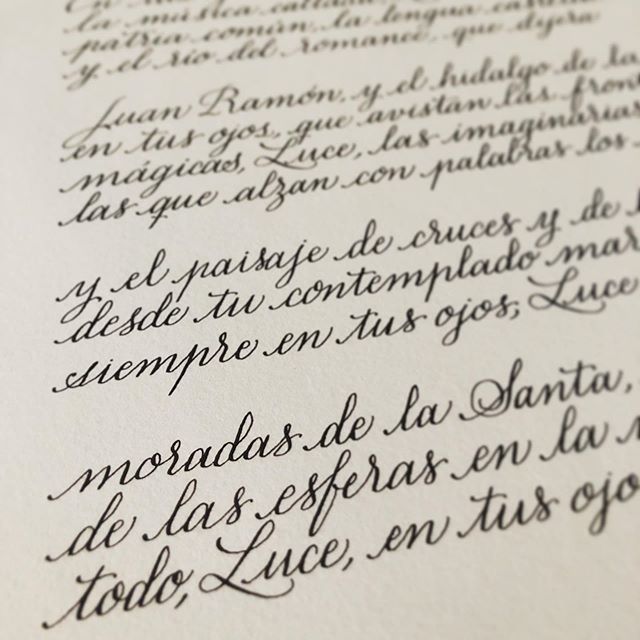 la música callada,
patria común, la lengua
y el río del romance, que dijera
Juan Ramón, y el hidalgo de la
en tus ojos, que avistan las
mágicas, Luce, las imaginarias
las que alzan con palabras los
y el paisaje de cruces y de
desde tu contemplado mar
siempre en tus ojos, Luce
moradas de la Santa,
de las esferas en la
todo, Luce, en tus